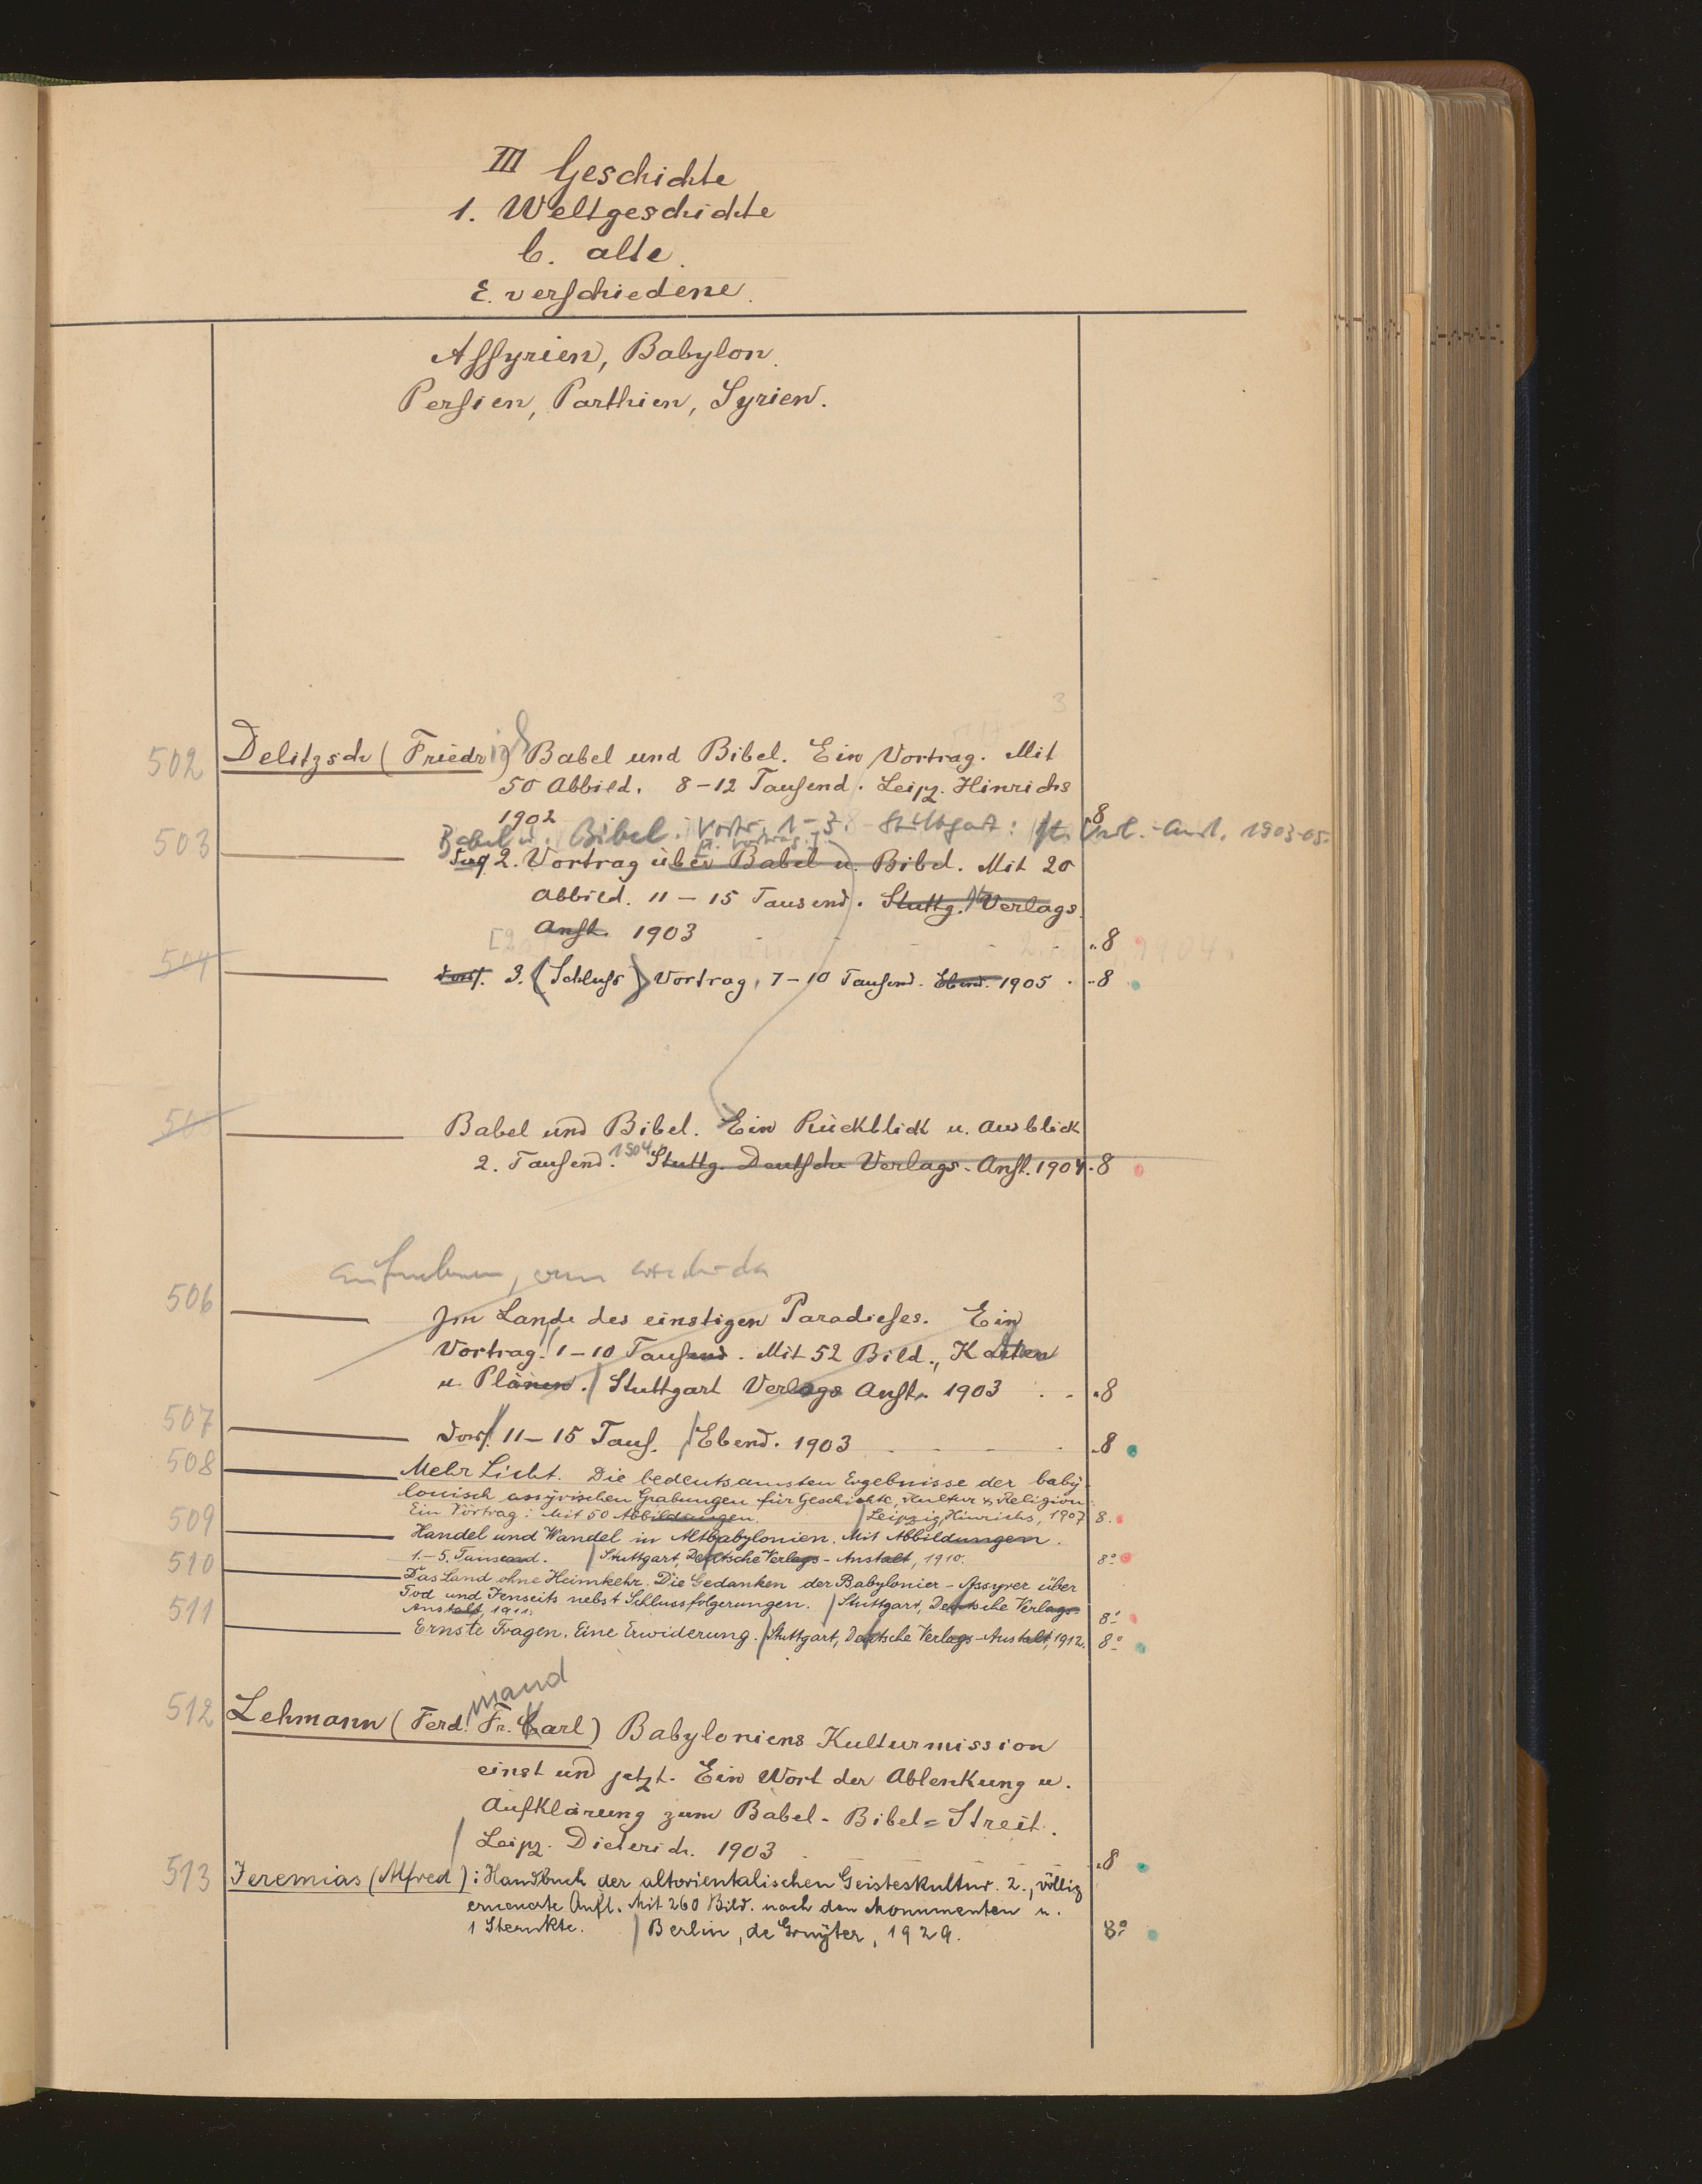 III Geschichte
1. Weltgeschichte
b. alte.
ε. verschiedene.
Assyrien, Babylon.
Persien, Parthien, Syrien.
3
502 Delitzsch (Friedrich) Babel und Bibel. Ein Vortrag. Mit
50 Abbild. 8-12 Tausend. Leipz. Hinrichs
1902 8
Babel u. Bibel. Vortr. 1-3. Stuttgart: Dt. Verl.-Anst. 1903-05.
503 2. Vortrag über Babel u. Bibel. Mit 20
Abbild. 11-15 Tausend. Stuttg. Verlags
Anst. 1903 8
504 3. (Schluss) Vortrag, 7-10 Tausend. Ebend. 1905 8
505 Babel und Bibel. Ein Rückblick u. Ausblick
2. Tausend. 1904 Stuttg. Deutsche Verlags-Anst. 1904 8
506 Im Lande des einstigen Paradieses. Ein
Vortrag. 1-10 Tausend. Mit 52 Bild., Karten
u. Plänen. Stuttgart Verlags Anst. 1903 8
507 11-15 Taus. Ebend. 1903 8
508 Mehr Licht. Die bedeutsamsten Ergebnisse der baby-
lonisch assyrischen Grabungen für Geschichte, Kultur & Religion.
Ein Vortrag: Mit 50 Abbildungen. Leipzig, Hinrichs, 1907 8.
509 Handel und Wandel in Altbabylonien. Mit Abbildungen.
1.-5. Tausend. Stuttgart, Deutsche Verlags-Anstalt, 1910. 8°
510 Das Land ohne Heimkehr. Die Gedanken der Babylonier-Assyrer über
Tod und Jenseits nebst Schlussfolgerungen. Stuttgart, Deutsche Verlags-
Anstalt, 1911. 8°
511 Ernste Fragen. Eine Erwiderung. Stuttgart, Deutsche Verlags-Anstalt, 1912. 8°
512 Lehmann (Ferdinand Fr. Karl) Babyloniens Kulturmission
einst und jetzt. Ein Wort der Ablenkung u.
Aufklärung zum Babel-Bibel=Streit.
Leipz. Dieterich. 1903 8
513 Jeremias (Alfred): Handbuch der altorientalischen Geisteskultur. 2., völlig
erneuerte Aufl. Mit 260 Bild. nach den Monumenten u.
1 Sternkte. Berlin, de Gruyter, 1929. 8°